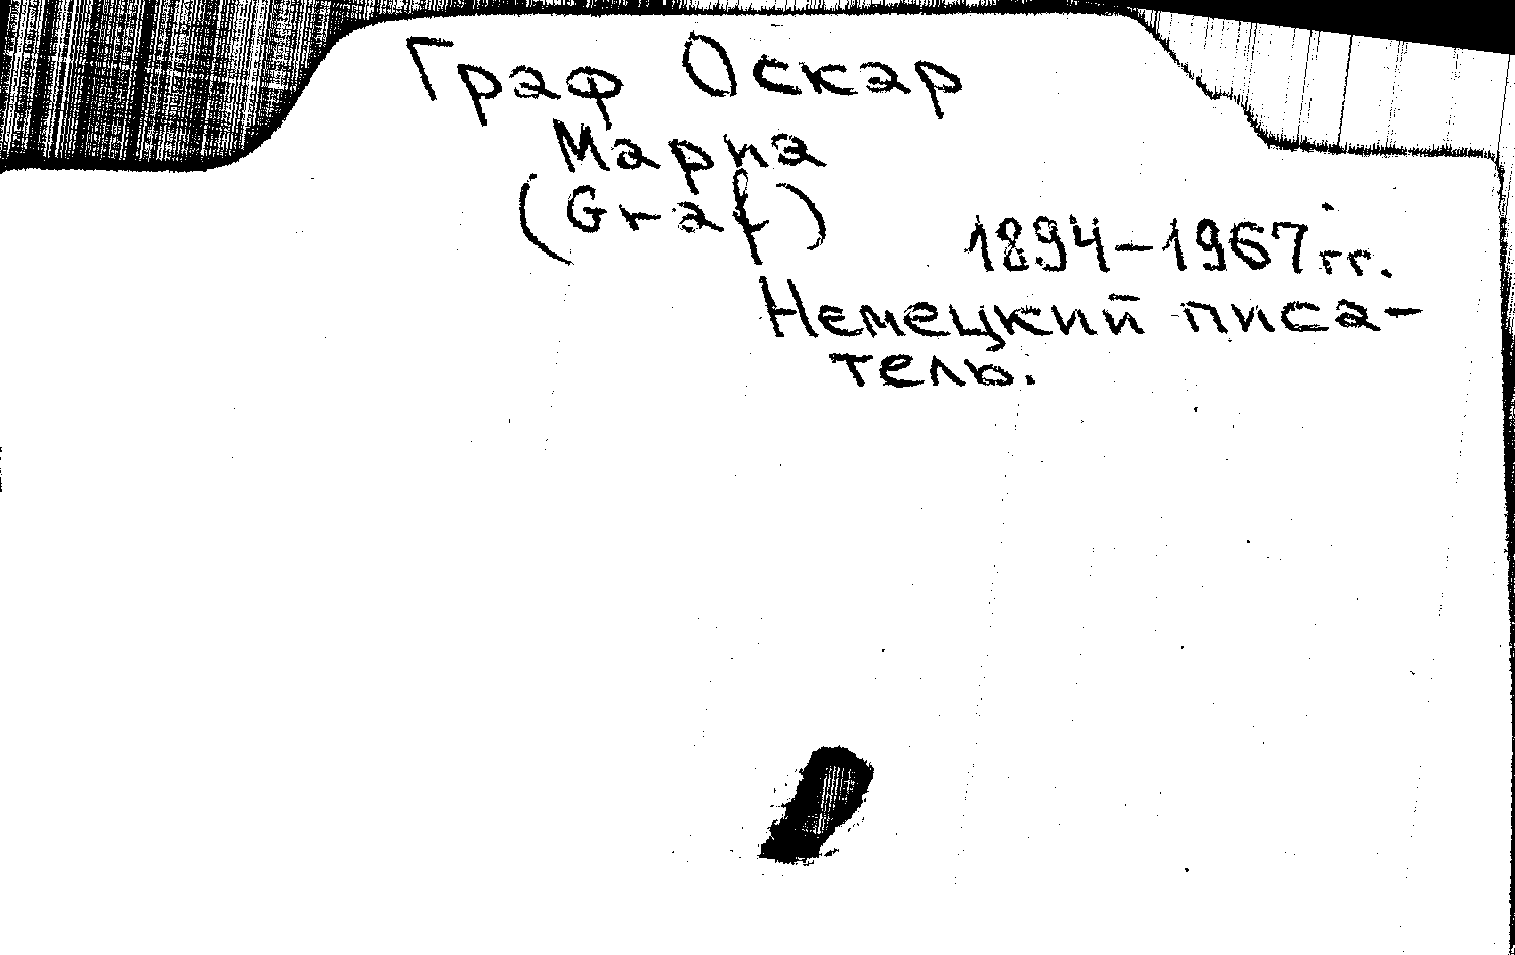 Граф Оскар
Мариа
(Graf)
1894-1967 гг.
Немецкий писа-
тель.